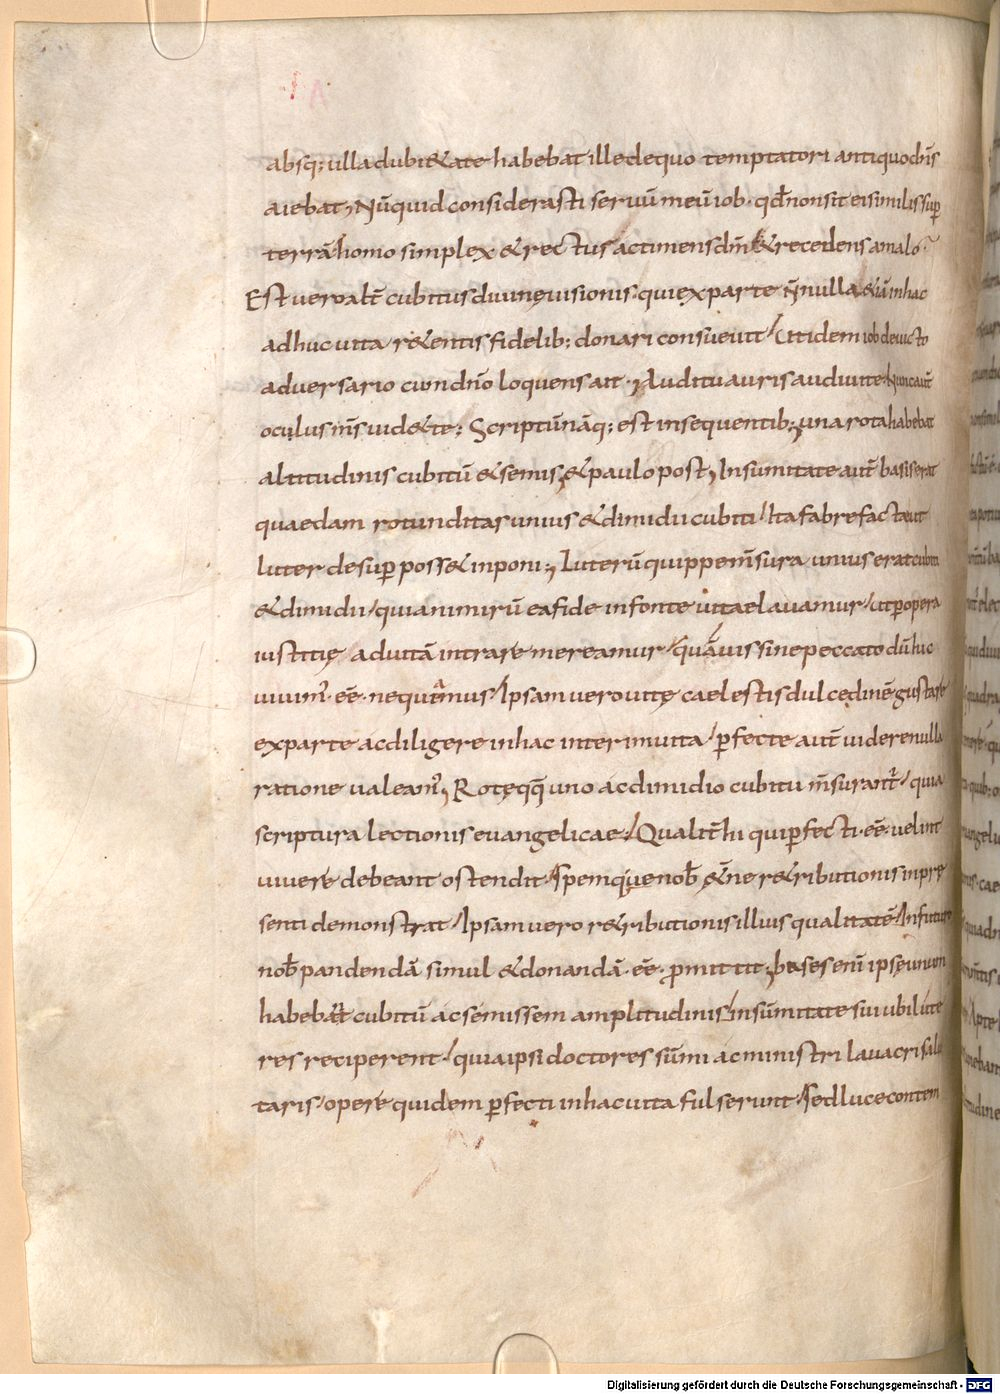 absq; ulla dubi&ate habebat ille de quo temptatori antiquo dn̄s
aiebat, Nūquid considerasti seruū meū iob · qđ non sit ei similis sup̄
terrā / homo simplex & rectus ac timens dm̄ & recedens a malo ·
Est uero alt̄ cubitus diuinę uisionis · qui ex parte n̄nulla & iā in hac
adhuc uita r&entis fidelib; donari consueuit / Ut idem iob deuicto
aduersario cum dn̄o loquens ait · Auditu auris audiui te · Nunc aut̄
oculus m̄s uid& te; Scriptū nāq; est in sequentib; una rota habebat
altitudinis cubitū & semis, & paulo post, In sumitate aut̄ basis erat
quaedam rotunditas unius & dimidii cubiti / Ita fabrefacta ut
luter desup̄ poss& inponi; Luterū quippe m̄sura unius erat cubiti
& dimidii / quia nimirū ea fide in fonte uitae lauamur / ut p̄ opera
iustitię ad uitā intrare mereamur / quāuis sine peccato dū huc
uiuim᾽ · eē · nequeamus / Ipsam uero uitę caelestis dulcedinē gustare
ex parte ac diligere in hac interim uita / p̄fecte aut̄ uidere nulla
ratione ualeam᾽, Rotę qq̄ uno ac dimidio cubitu m̄surant᾽ / quia
scriptura lectionis euangelicae / Qualit̄ hi qui p̄fecti · eē · uelint
uiuere debeant ostendit / Spemque nob̄ ęt̄ne r&ributionis in prę
senti demonstrat / Ipsam uero r&ributionis illius qualitatē / In futuro
nob̄ pandendā simul & donandā · eē · p̄mittit; bases eni ipsę unum
habebant cubitū ac semissem amplitudinis / in sūmitate sui ubi lute
res reciperent / quia ipsi doctores sūmi ac ministri lauacri salu
taris / opere quidem p̄fecti in hac uita fulserunt / Sed luce contem
Digitalisierung gefördert durch die Deutsche Forschungsgemeinschaft - DFG